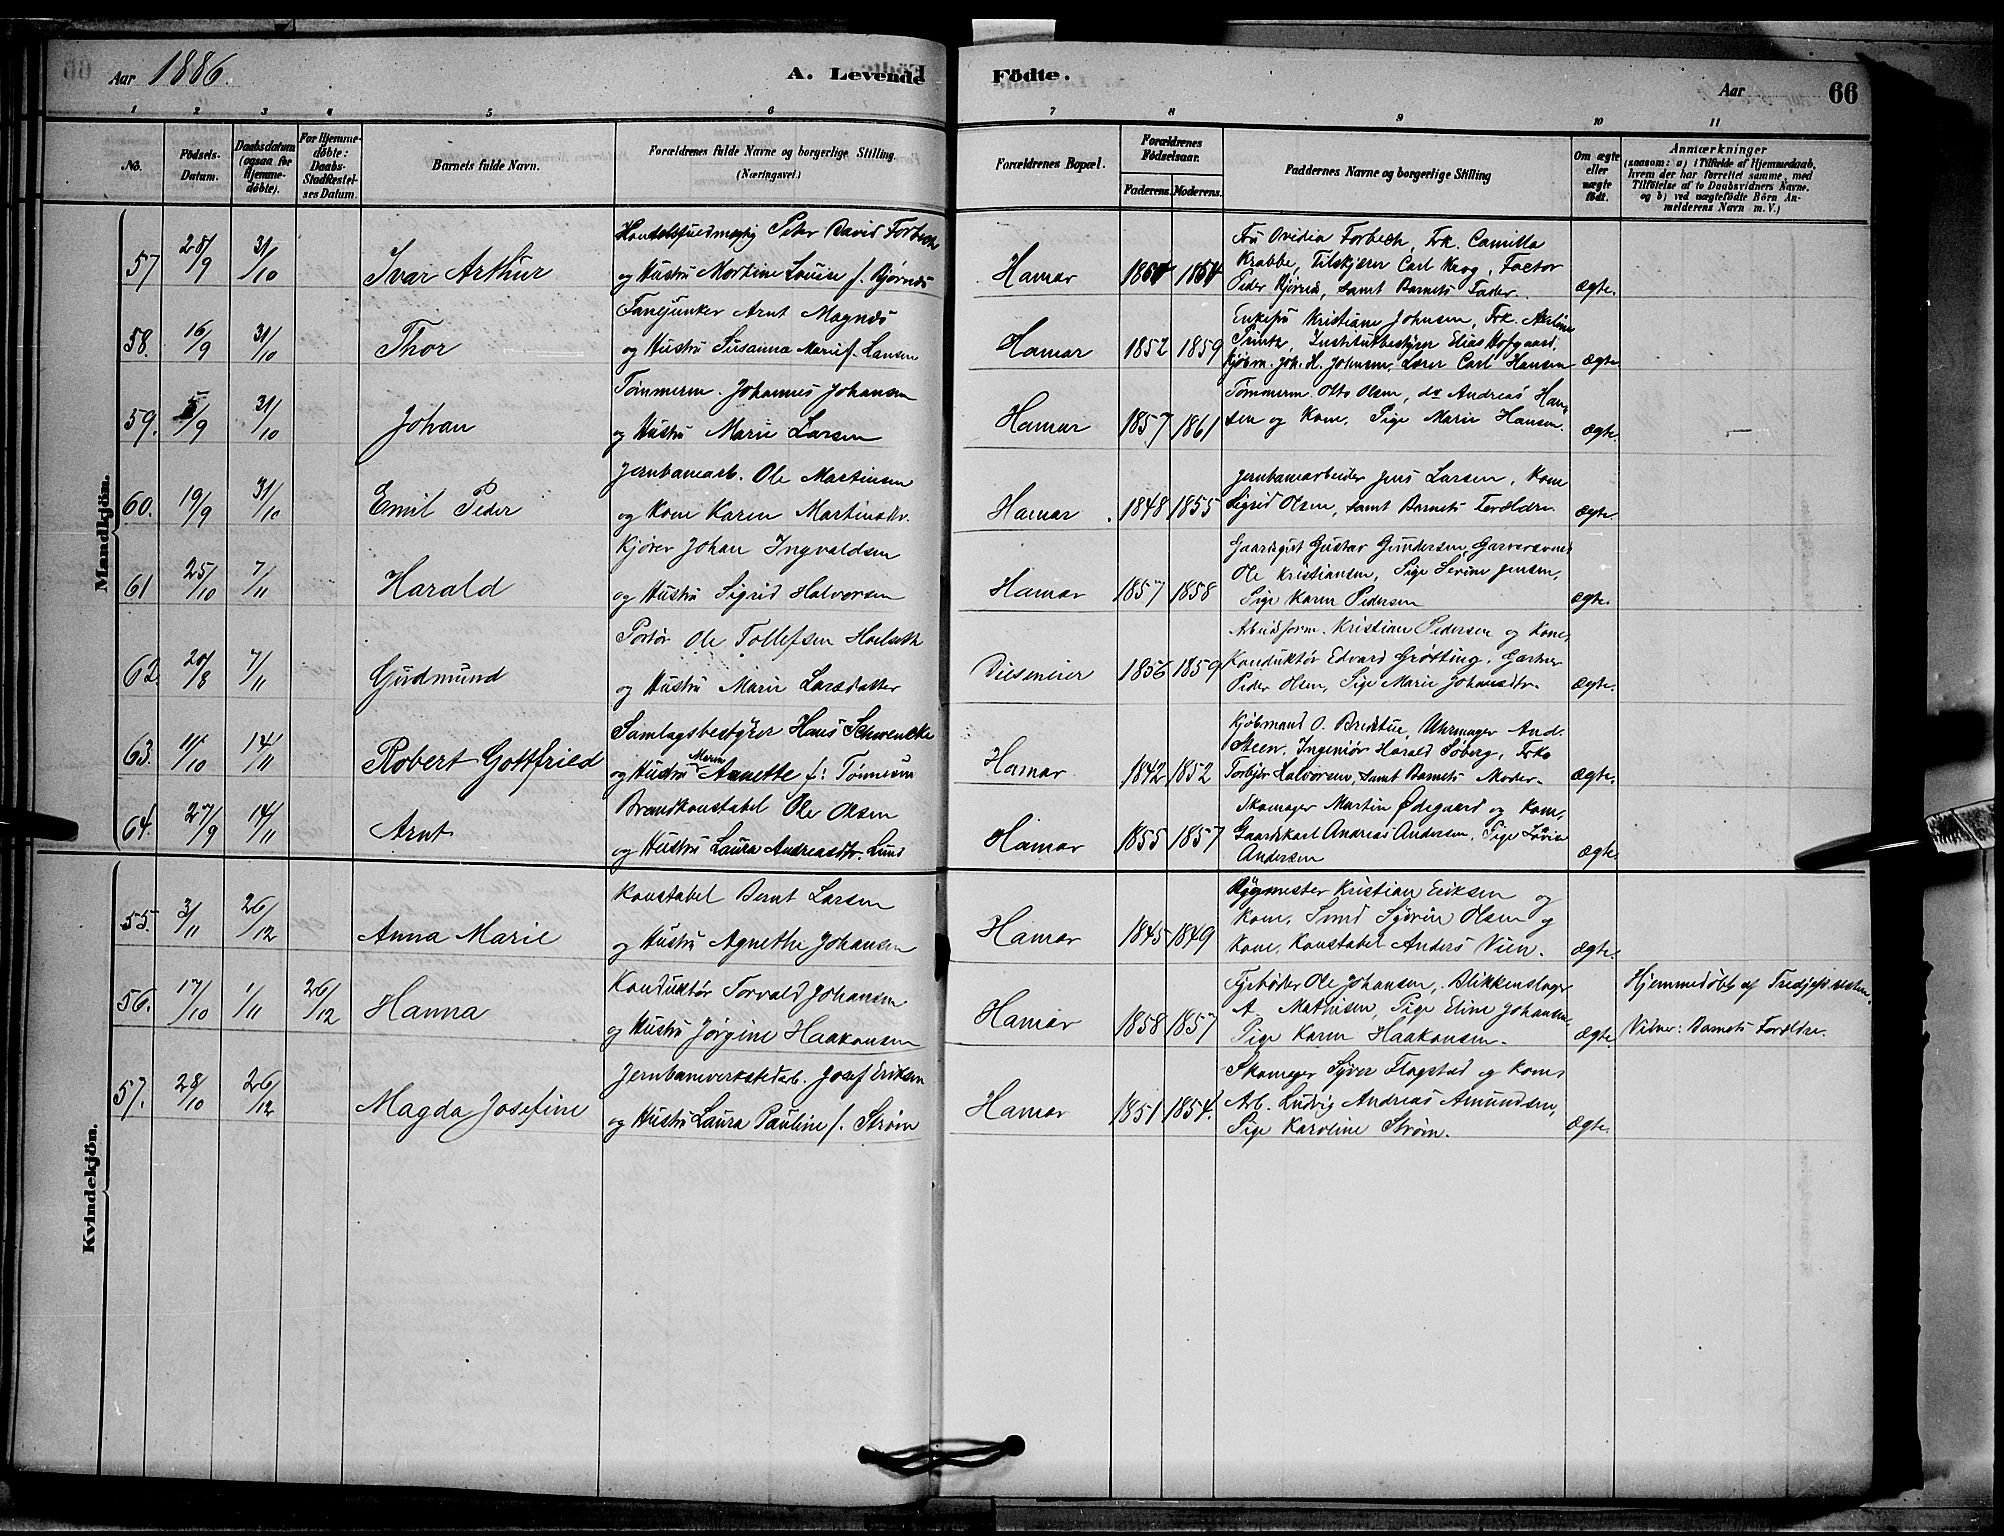 Aar 1886. A. Levende Födte. Aar 66
1 2 3 4 5 6 7 8 9 10 11
No. Födsels-Datum. Daabsdatum (ogsaa for Hjemme-döbte). For Hjemme-döbte: Daabs-Stadfæstel-ses Datum. Barnets fulde Navn. Forældrenes fulde Navne og borgerlige Stilling. (Næringsvei.) Forældrenes Bopæl. Forældrenes Fødselsaar. Faderens. Moderens. Faddernes Navne og borgerlige Stilling Om ægte eller uægte födt. Anmærkninger
(saasom: a) i Tilfælde af Hjemmedaab,
hvem der har forrettet samme, med
Tilföielse af to Daabsvidners Navne.
og b) ved uægtefödte Börn An-
melderens Navn m. V.)
Mandkjön.
57 28/9 31/10 Ivar Arthur
Peter David Forbech
og Hustru Martine Louise f. Bjørnæs
Hamar
Fru Ovidia Forbech, Frk. Camilla
Krabbe, Carl Krog, Factor
Peder Bjørnæs, samt Barnets Fader.
ægte.
58. 16/9 31/10 Thor
Fanejunker Arnt Magnæs
og Hustru Susanna Marie f. Hansen
Hamar 1852 1859
Enkefru Kristiane Johnsen, Frk.
Printz, Institutbestyrer Elias Hofgaard,
Kjøbm. Joh. H. Johnsen, Lærer Carl Hansen
ægte
59. 5/9 31/10 Johan
Tømmerm. Johannes Johansen
og Hustru Marie Larsen
Hamar 1857 1861
Tømmerm. Otto Olsen, do Andreas Han-
sen og Kone, Pige Marie Hansen.
ægte.
60. 19/9 31/10 Emil Peder
Jernbanearb. Ole Martinsen
og Kone Karen Martinsdtr.
Hamar 1848 1855
Jernbanearbeider Jens Larsen, Kone
Sigrid Olsen, samt Barnets Forældre.
ægte.
61 25/10 7/11 Harald
Kjører Johan Ingvaldsen
og Hustru Sigrid Halvorsen
Hamar 1857 1858
Gaardsgut Gustav Gundersen, Garversvend
Ole Kristiansen, Pige Serine Jensen,
Pige Karen Pedersen
ægte.
62. 20/8 7/11 Gudmund
Portør Ole Tollefsen
og Hustru Marie Larsdatter
1856 1859
Arbeidsform. Kristian Pedersen og Kone,
Konduktør Edvard Grøtting, Gartner
Peder Olsen, Pige Marie Johansdtr.
ægte.
63. 11/10 14/11 Robert Gottfried
Samlagsbestyrer Hans Schwencke
og Hustru Maren Annette f: Tønnesen
Hamar 1842 1852
Kjøbmand O. Uhrmager And.
Steen, Ingeniør Harald Søberg, Frk.
Torbjør Halvorsen, samt Barnets Moder.
ægte.
64. 27/9 14/11 Arnt
Brandkonstabel Ole Olsen
og Hustru Laura Andreasdtr. Lund
Hamar 1855 1857
Skomager Martin Ødegaard og Kone,
Gaardskarl Andreas Andersen, Pige Lovise
Andersen
ægte.
Kvindekjön.
55. 3/11 26/12 Anna Marie
Konstabel Bernt Larsen
og Hustru Agnethe Johansen
Hamar 1845 1849
Bygmester Kristian Eriksen og
Kone, Smed Syverin Olsen og
Kone, Konstabel Anders Vien.
ægte.
56. 17/10 1/11 26/12 Hanna
Konduktør Torvald Johansen
og Hustru Jørgine Haakonsen
Hamar 1858 1857
Fyrbøder Ole Johansen, Blikkenslager
A. Mathisen, Pige Eline Johansen,
Pige Karen Haakonsen.
ægte.
Hjemmedøbt af
Vidner: Barnets Forældre.
57. 28/10 26/12 Magda Josefine
Jernbaneverkstedarb. Josef Eriksen
og Hustru Laura Pauline f. Strøm
Hamar 1851 1854.
Skomager Syver Flagstad og Kone,
Arb. Ludvig Andreas Amundsen,
Pige Karoline Strøm.
ægte.